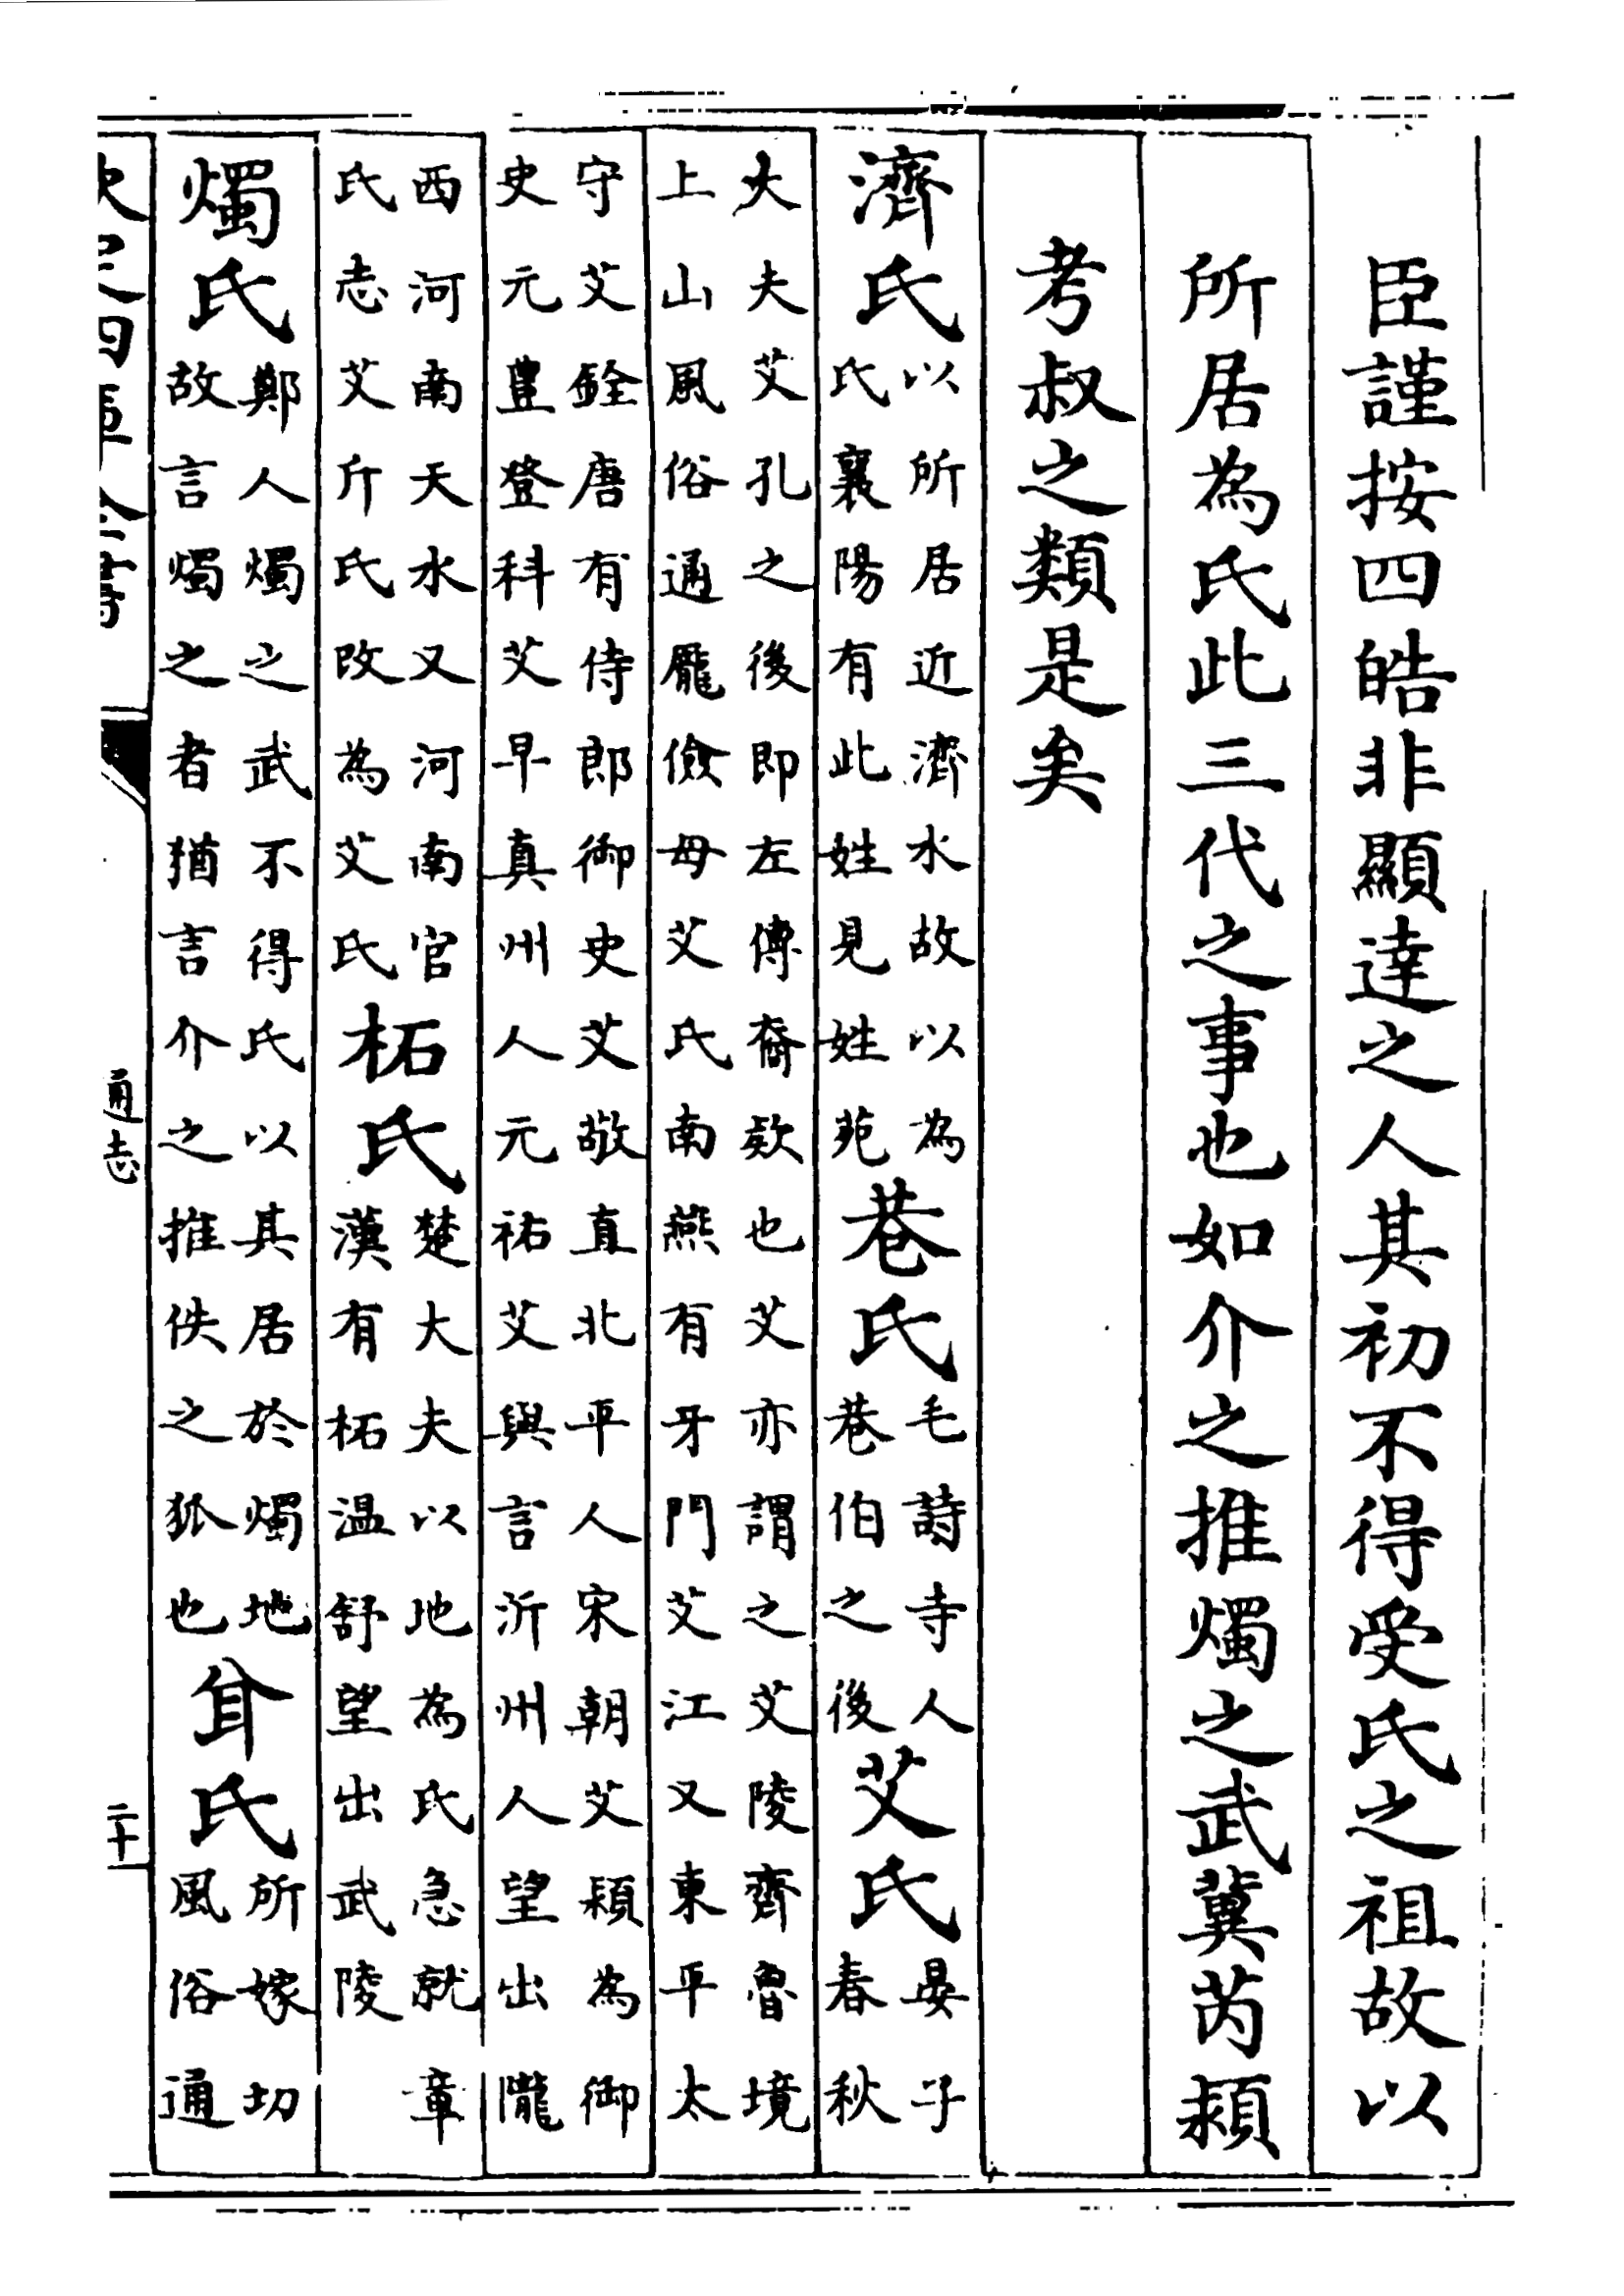 臣謹按四皓非顯達之人其初不得受氏之祖故以
所居為氏此三代之事也如介之推燭之武冀芮潁
考叔之類是矣
濟氏
以所居近濟水故以為
氏襄陽有此姓見姓苑
巷氏
毛詩寺人
巷伯之後
艾氏
晏子
春秋
大夫艾孔之後即左傳裔欵也艾亦謂之艾陵齊魯境
上山風俗通龎儉母艾氏南燕有牙門艾江又東平太
守艾銓唐有侍郎御史艾敬直北平人宋朝艾潁為御
史元豊登科艾早真州人元祐艾與言沂州人望出隴
西河南天水又河南官
氏志艾斤氏改為艾氏
柘氏
楚大夫以地為氏急就章
漢有柘温舒望出武陵
燭氏
鄭人燭之武不得氏以其居於燭地
故言燭之者猶言介之推佚之狐也
氏
所嫁切
風俗通
欽定四庫全書
通志
二十